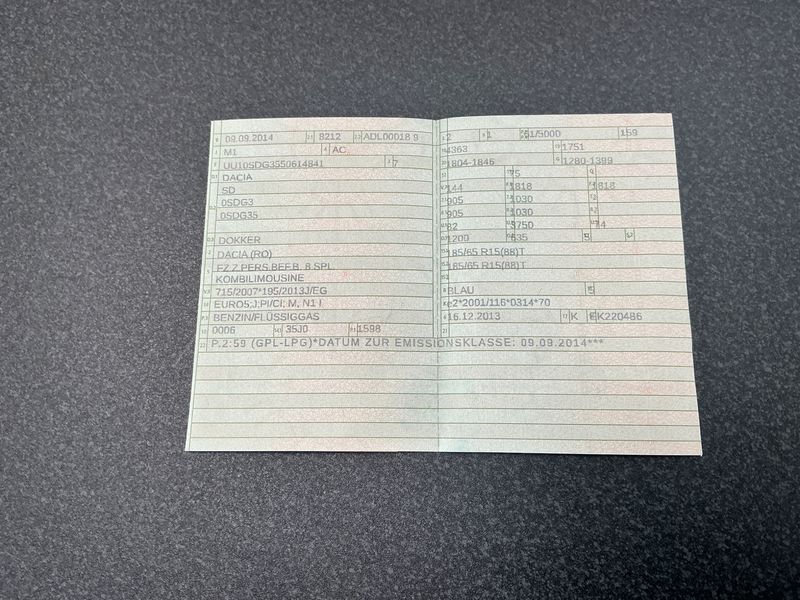 09.09.2014 8212 ADL00018 9
M1 AC
UU10SDG3550614841 7
DACIA
SD
0SDG3
0SDG35
DOKKER
DACIA (RO)
FZ.Z.PERS.BEF.B. 8 SPL
KOMBILIMOUSINE
715/2007*195/2013J/EG
EURO5;J;PI/CI; M, N1 I
BENZIN/FLÜSSIGGAS
0006 35J0 1598
2 1 61/5000 159
4363 1751
1804-1846 1280-1399
75
144 818 818
905 1030
905 1030
82 3750 74
1200 635
185/65 R15(88)T
185/65 R15(88)T
BLAU 5
e2*2001/116*0314*70
16.12.2013 K EK220486
P.2:59 (GPL-LPG)*DATUM ZUR EMISSIONSKLASSE: 09.09.2014***